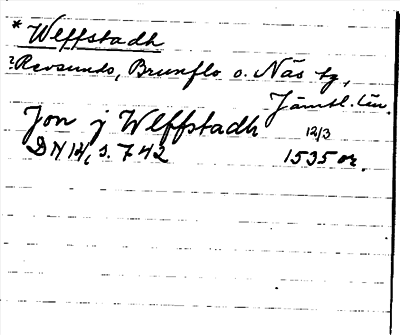 * Wlffstadh
? Revsunds, Brunflo o. Näs tg,
Jämtl. län.
Jon j Wlffstadh 12/3
DN 14, s. 742 1535 or.